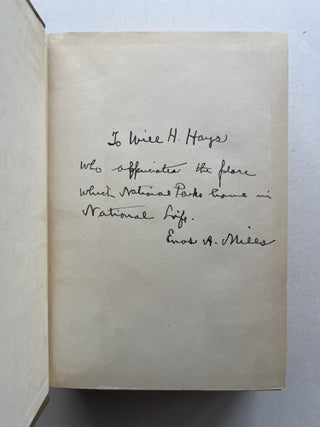 To Will H. Hays
who appreciates the place
which National Parks have in
National Life.
Enos A. Mills